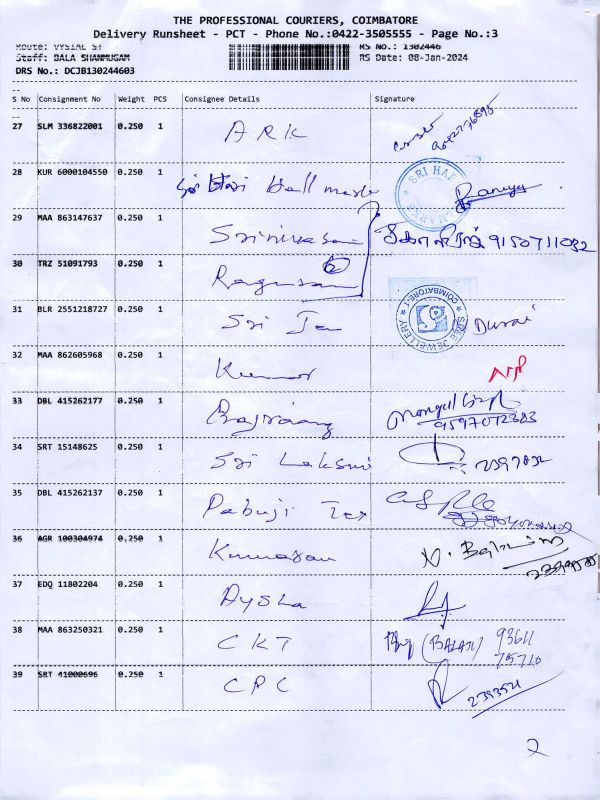 THE PROFESSIONAL COURIERS, COIMBATORE
Delivery Runsheet - PCT - Phone No.:0422-3505555 - Page No.:3
Route: VYSIAL ST RS No.: 1302446
Staff: BALA SHANMUGAM RS Date: 08-Jan-2024
DRS No.: DCJB130244603
S No Consignment No Weight PCS Consignee Details Signature
27 SLM 336822001 0.250 1 ARK
28 KUR 6000104550 0.250 1 Sri Hari Hall mark SRI HARI
29 MAA 863147637 0.250 1 Srinivasan 9150711032
30 TRZ 51091793 0.250 1 Ragusam
31 BLR 2551218727 0.250 1 Sri Jew SREE JEWELLERY COIMBATORE-1 Durai
32 MAA 862605968 0.250 1 Kumar
33 DBL 415262177 0.250 1 Bajrang 9597072383
34 SRT 15148625 0.250 1 Sri Laksmi
35 DBL 415262137 0.250 1 Pabuji Tex
36 AGR 100304974 0.250 1 Kumaran
37 EDQ 11802204 0.250 1 Aysha
38 MAA 863250321 0.250 1 CKT (BALAJI) 93611
75710
39 SRT 41000696 0.250 1 CPC
2